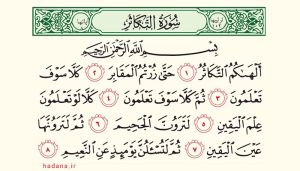 سُورَةُ التَّكَاثُرِ
بِسْمِ اللَّهِ الرَّحْمَٰنِ الرَّحِيمِ
أَلْهَاكُمُ التَّكَاثُرُ ١ حَتَّىٰ زُرْتُمُ الْمَقَابِرَ ٢ كَلَّا سَوْفَ
تَعْلَمُونَ ٣ ثُمَّ كَلَّا سَوْفَ تَعْلَمُونَ ٤ كَلَّا لَوْ تَعْلَمُونَ
عِلْمَ الْيَقِينِ ٥ لَتَرَوُنَّ الْجَحِيمَ ٦ ثُمَّ لَتَرَوُنَّهَا
عَيْنَ الْيَقِينِ ٧ ثُمَّ لَتُسْأَلُنَّ يَوْمَئِذٍ عَنِ النَّعِيمِ ٨
hadana.ir